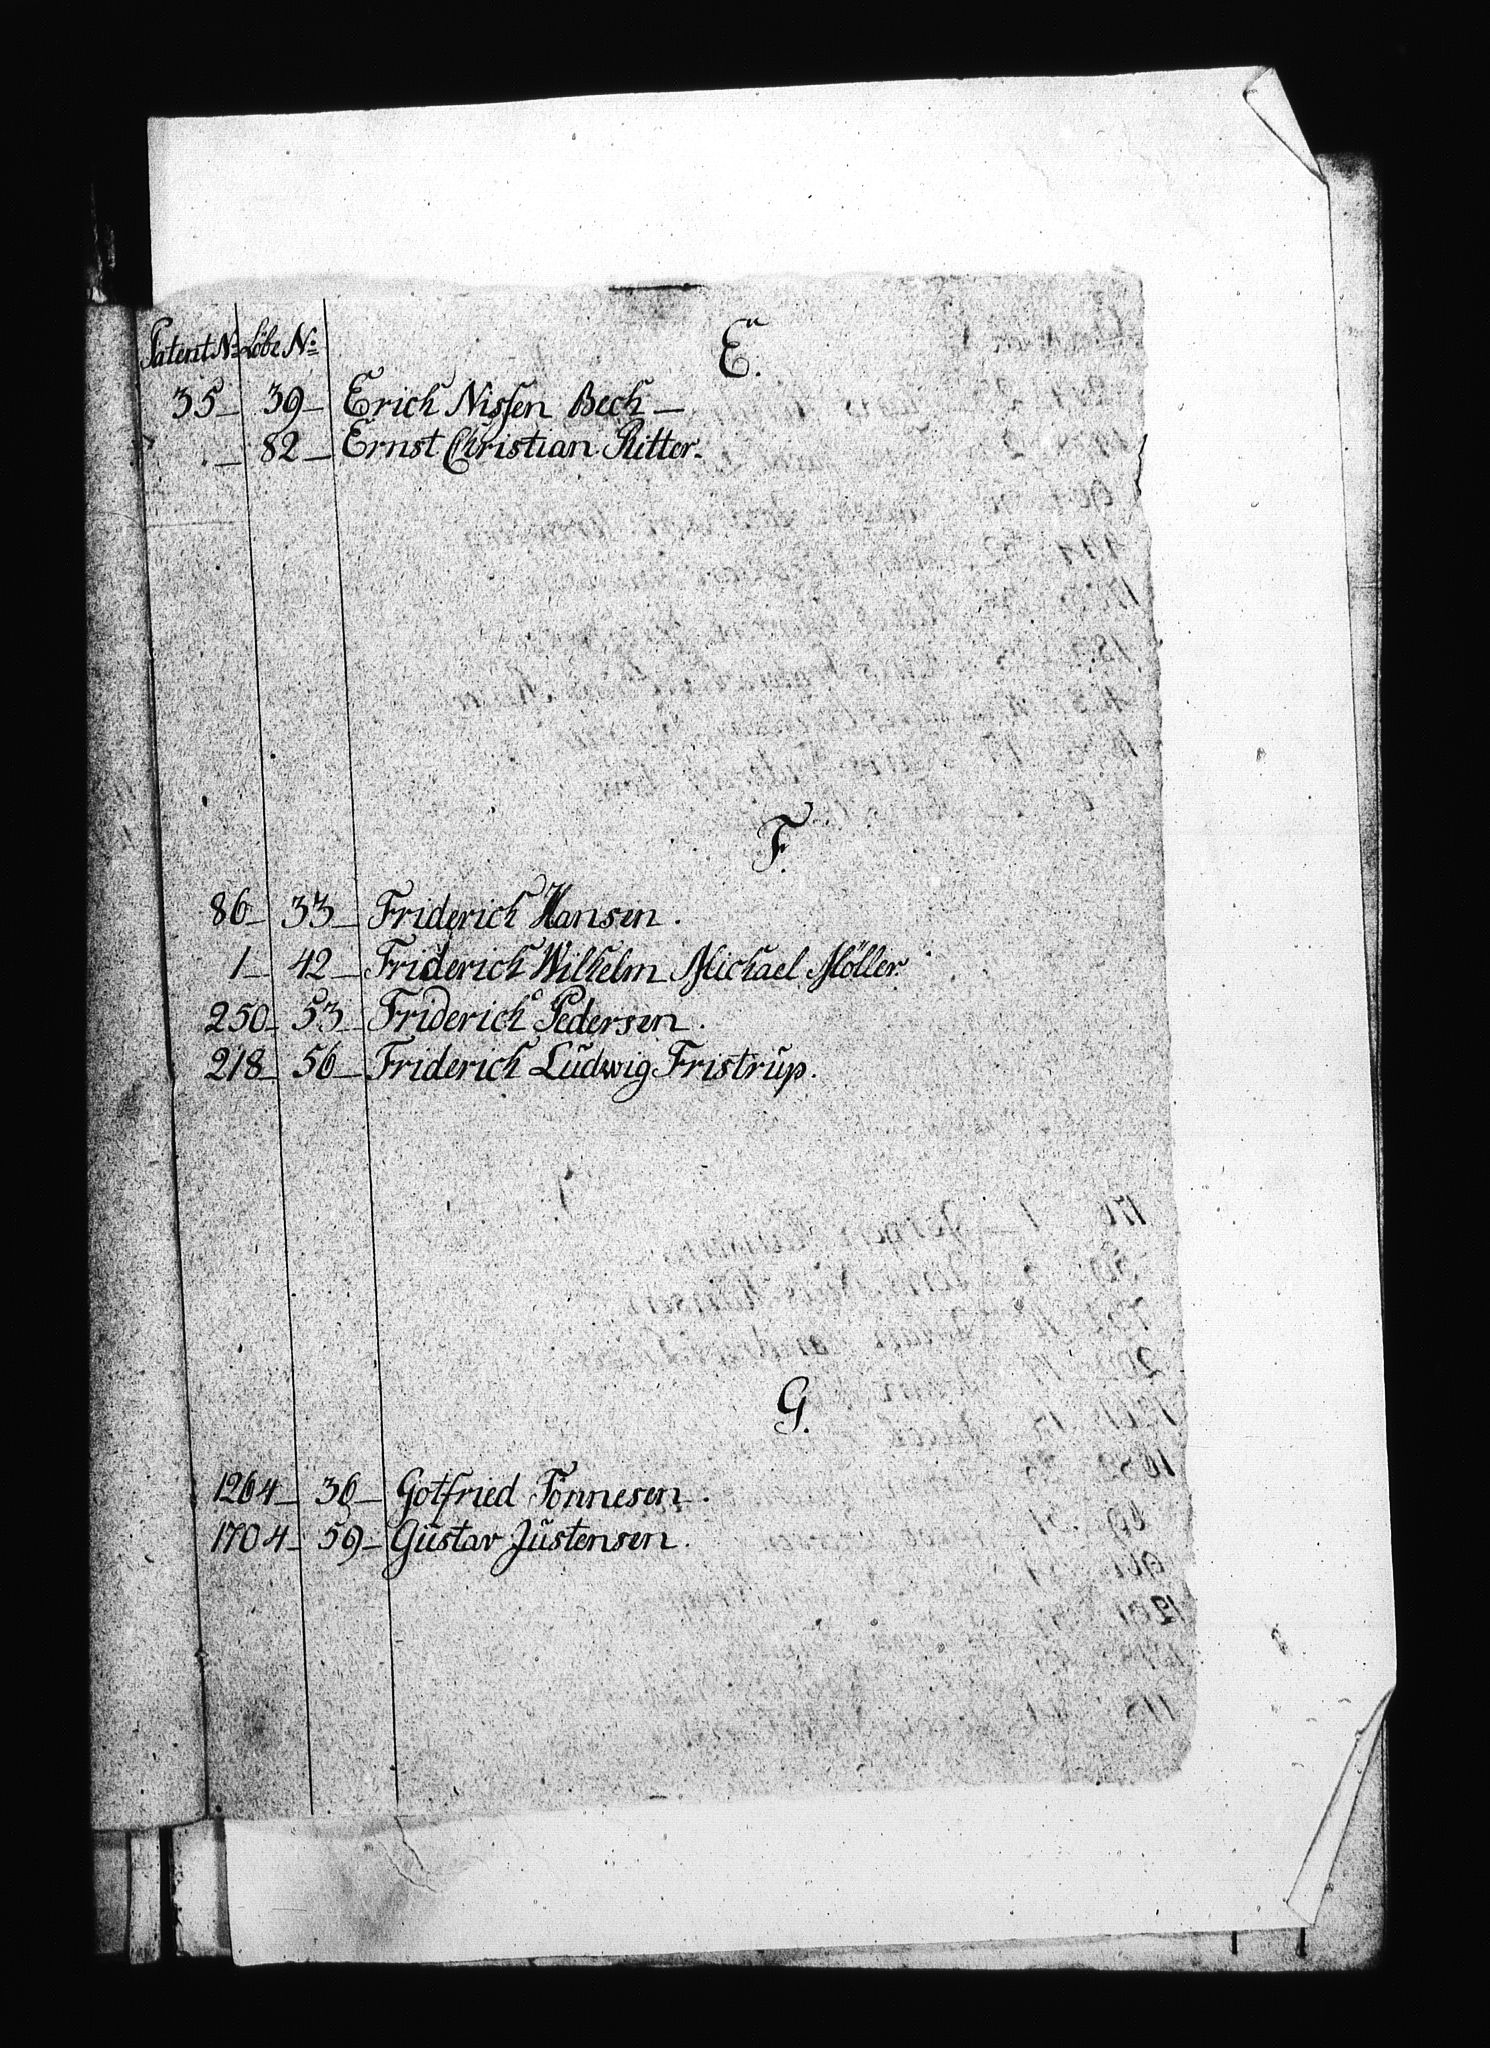 Patent No Löbe No
E.
35 – 39 – Erich Nissen Bech –
– 82 – Ernst Christian Ritter.
F.
86 – 33 – Friderich Hansen.
1 – 42 – Friderich Wilhelm Michael Möller.
250 – 53 – Friderich Pedersen.
218 – 56 – Friderich Ludwig Fristrup.
G.
1264 – 36 – Gotfried Tönnesen.
1704 – 59 – Gustav Justensen.